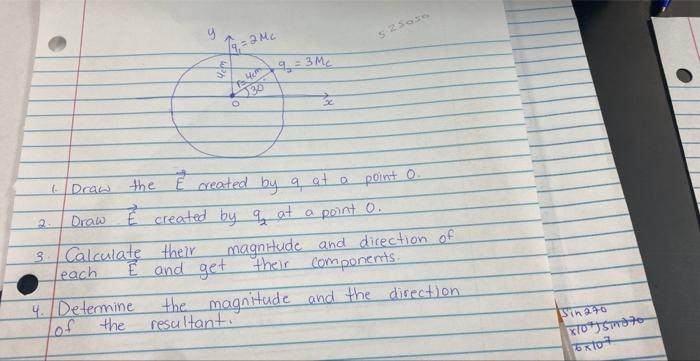 y
q₁ = 2Mc
525050
4cm
q₂ = 3Mc
r=4cm
30°
O
x
1. Draw the E⃗ created by q₁ at a point O.
2. Draw E⃗ created by q₂ at a point O.
3. Calculate their magnitude and direction of
each E⃗ and get their components
4. Determine the magnitude and the direction
of the resultant.
Sin270
x10⁷) Sin270
6x10⁷